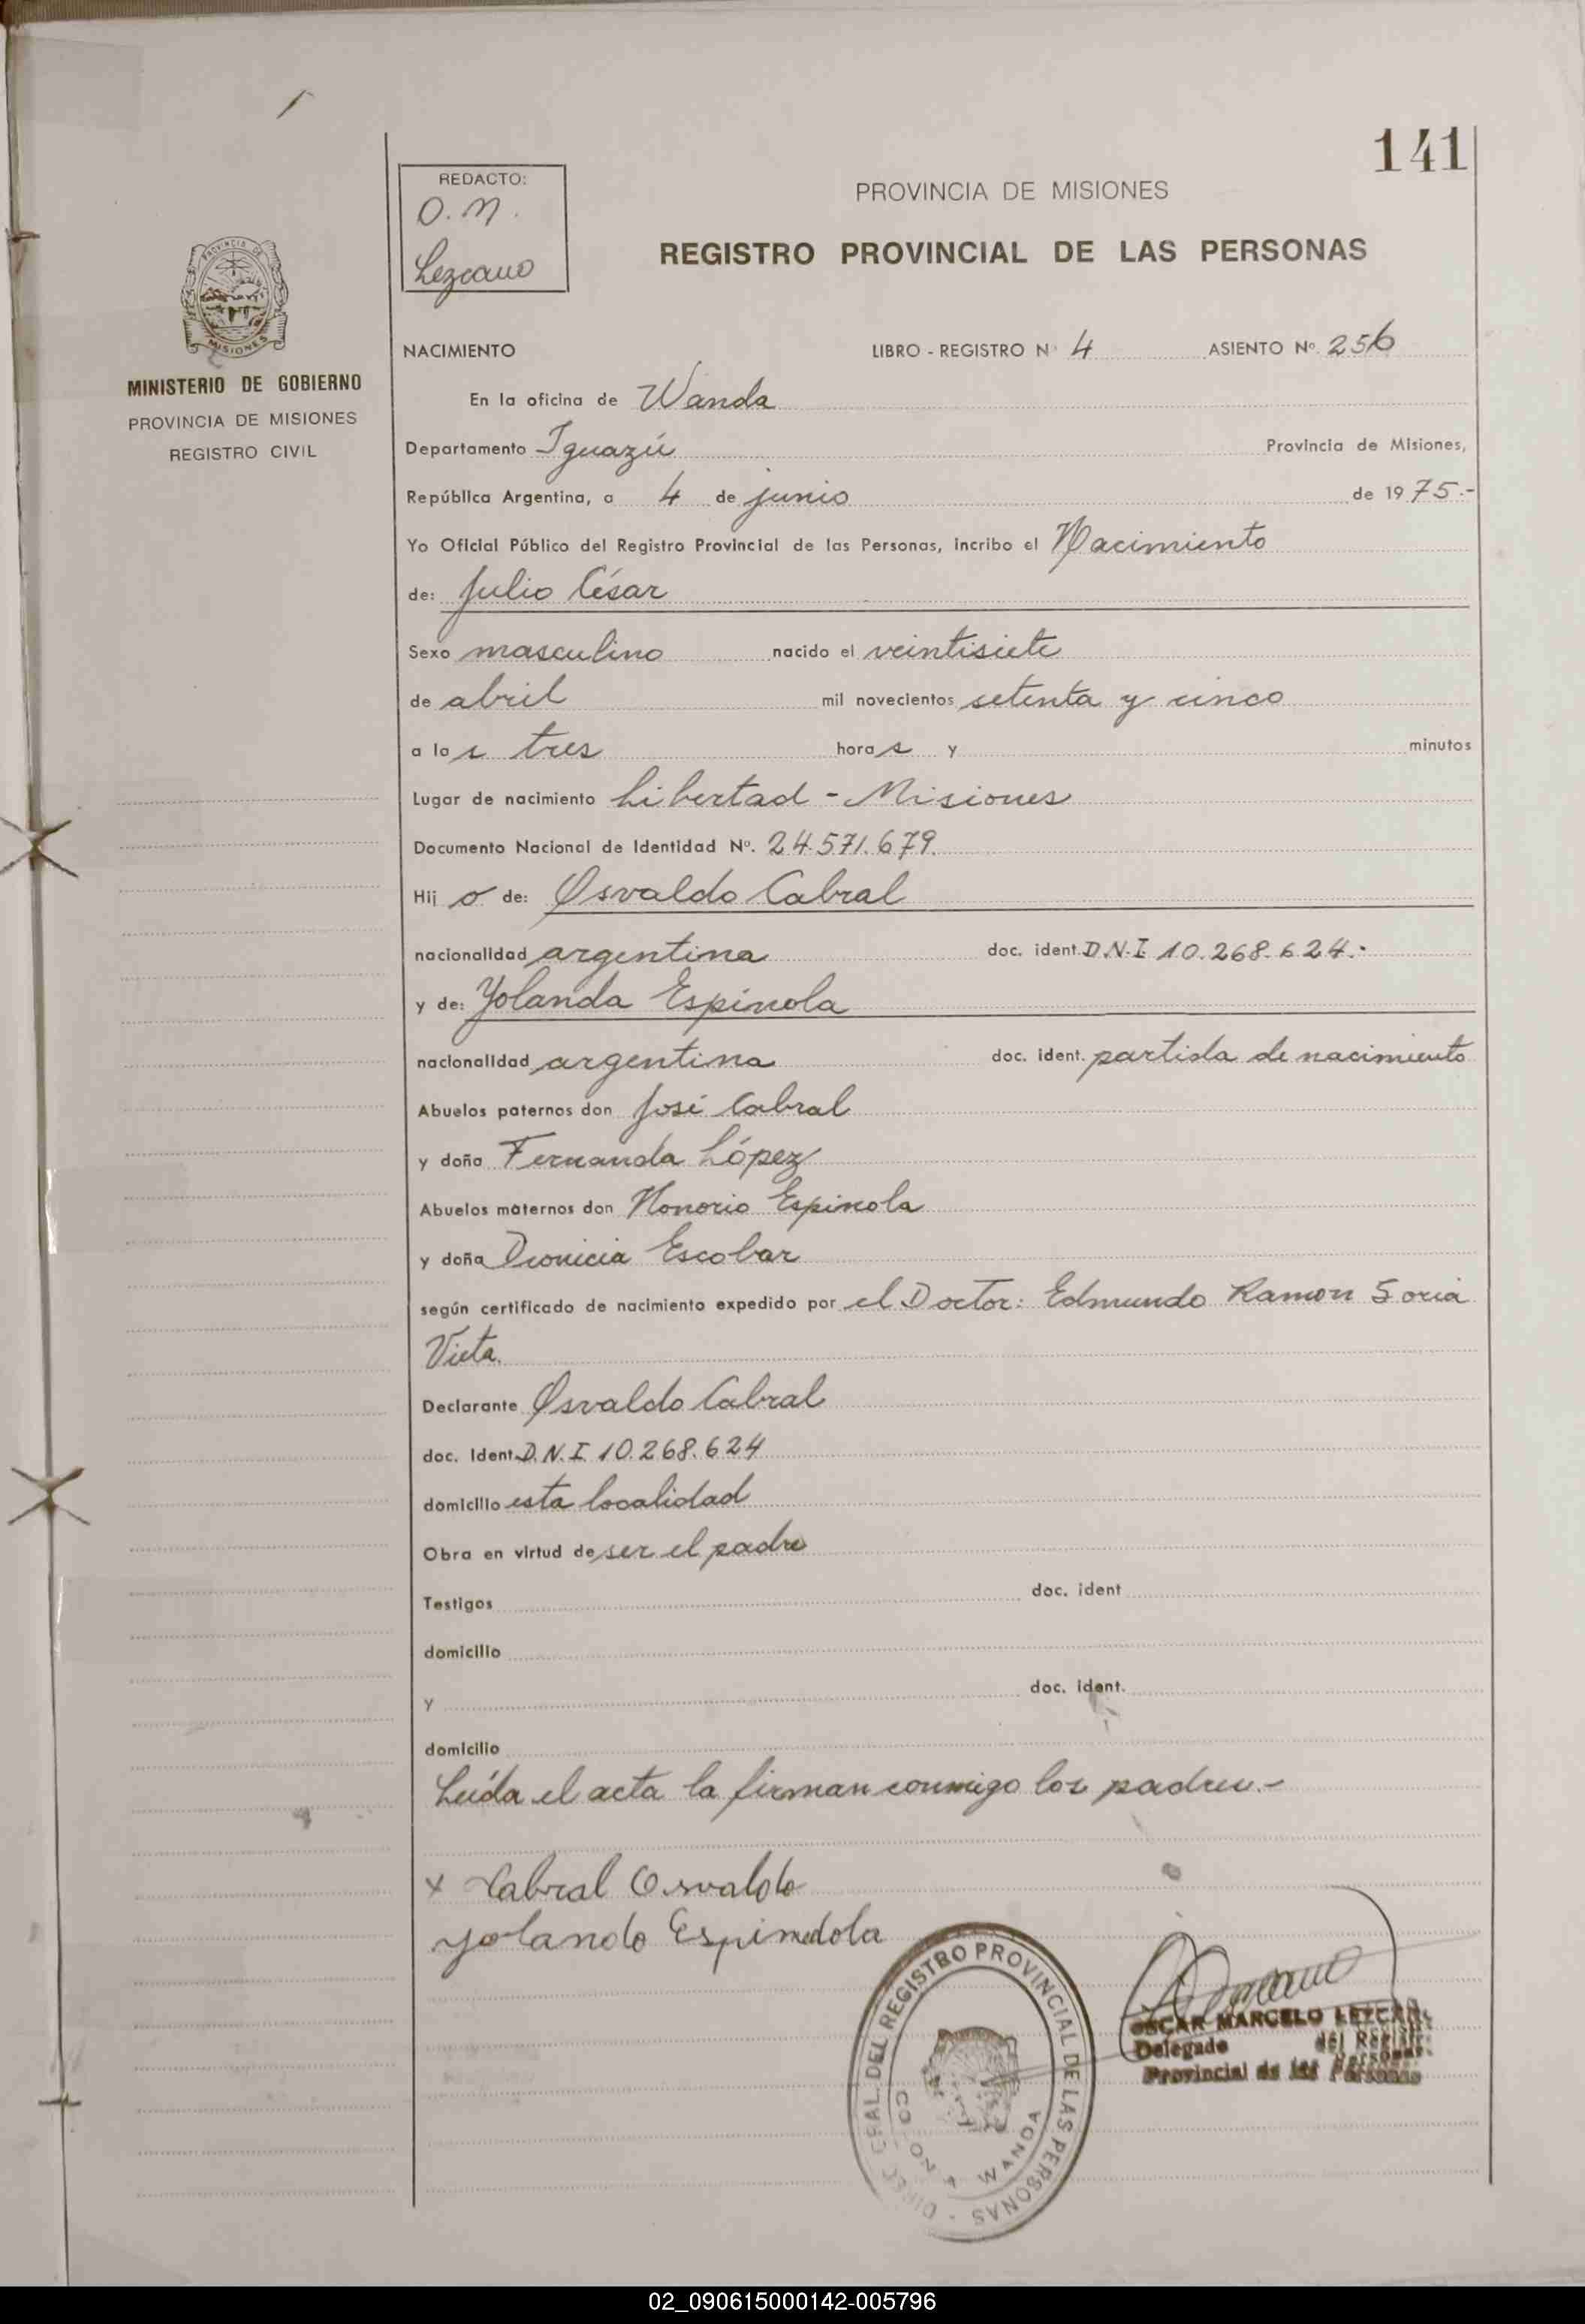 141
REDACTO:
O. M.
Lezcano
PROVINCIA DE MISIONES
REGISTRO PROVINCIAL DE LAS PERSONAS
PROVINCIA DE
MISIONES
MINISTERIO DE GOBIERNO
PROVINCIA DE MISIONES
REGISTRO CIVIL
NACIMIENTO LIBRO - REGISTRO Nº 4 ASIENTO Nº 256
En la oficina de Wanda
Departamento Iguazú Provincia de Misiones,
República Argentina, a 4 de junio de 1975.-
Yo Oficial Público del Registro Provincial de las Personas, incribo el Nacimiento
de: Julio César
Sexo masculino nacido el veintisiete
de abril mil novecientos setenta y cinco
a las tres horas y minutos
Lugar de nacimiento Libertad - Misiones
Documento Nacional de Identidad Nº. 24.571.679.
Hijo de: Osvaldo Cabral
nacionalidad argentina doc. ident. D.N.I 10.268.624.-
y de: Yolanda Espínola
nacionalidad argentina doc. ident. partida de nacimiento
Abuelos paternos don José Cabral
y doña Fernanda López
Abuelos maternos don Honorio Espinola
y doña Dionicia Escobar
según certificado de nacimiento expedido por el Doctor: Edmundo Ramon Soria
Vieta.
Declarante Osvaldo Cabral
doc. Ident. D.N.I. 10.268.624
domicilio esta localidad
Obra en virtud de ser el padre
Testigos doc. ident
domicilio
y doc. ident.
domicilio
Leída el acta la firman conmigo los padres.-
x Cabral Osvaldo
Yolando Espindola
DIREC. GRAL. DEL REGISTRO PROVINCIAL DE LAS PERSONAS
WANDA
OSCAR MARCELO LEZCANO
Delegado del Registro
Provincial de las Personas
02_090615000142-005796